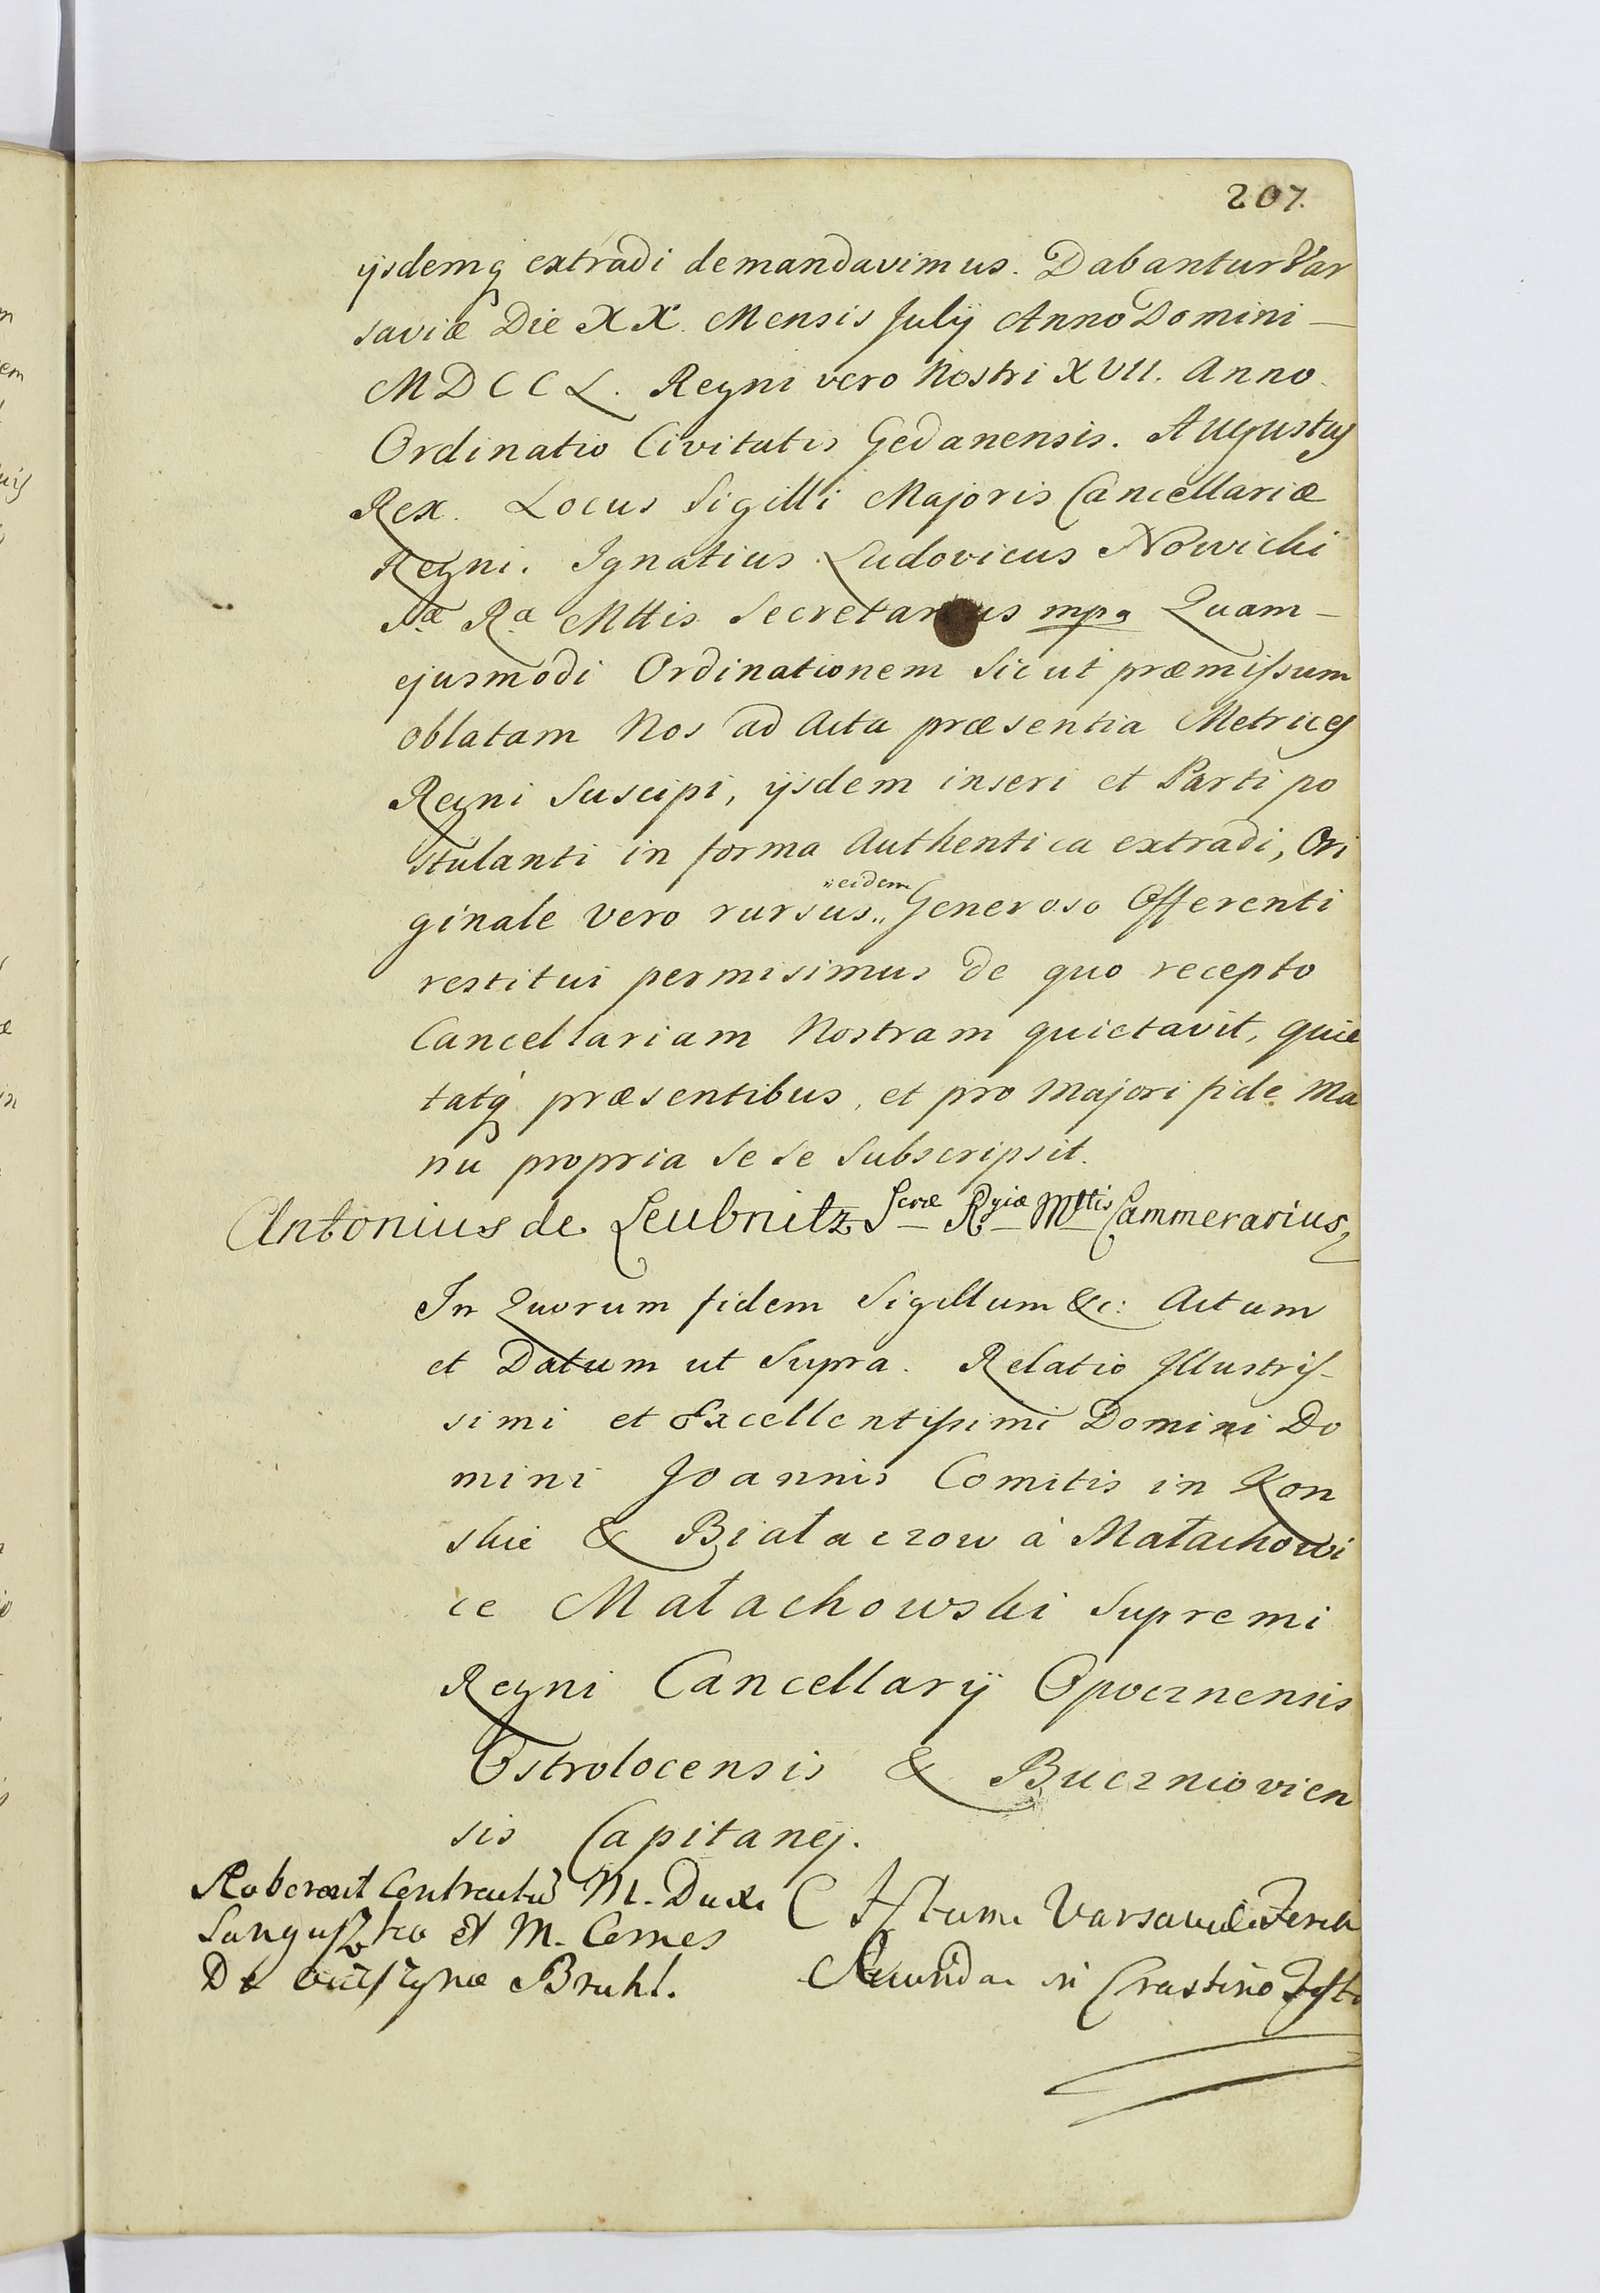 207.
ijsdemq extradi demandavimus. Dabantur Var
saviæ Die XX. Mensis Julij Anno Domini —
MDCCL. Regni vero Nostri XVII. Anno.
Ordinatio Civitatis Gedanensis. Augustus
Rex. Locus Sigilli Majoris Cancellariæ
Regni. Ignatius Ludovicus Nowicki
Sæ Ræ Mttis Secretarius mpa Quam —
ejusmodi Ordinationem Sicut præmissum
oblatam Nos ad Acta præsentia Metrices
Regni Suscipi, ijsdem inseri et Parti po
stulanti in forma Authentica extradi, Ori
ginale vero rursus " eidem Generoso Offerenti
restitui permisimus de quo recepto
Cancellariam Nostram quietavit, quie
tatq præsentibus, et pro Majori fide Ma
nu propria Se se Subscripsit.
Antonius de Leubnitz Scræ Rgiæ Mttis Cammerarius
In Quorum fidem Sigillum &c: Actum
et Datum ut Supra. Relatio Illustris-
simi et Excellentissimi Domini Do
mini Joannis Comitis in Kon
skie & Białaczow à Małachowi
ce Małachowski Supremi
Regni Cancellarij Opocznensis
Ostrolocensis & Buezniovien
sis Capitanej.
Contractus M. Dux
Sangusko et M. Comes
De Bruhl.
Varsaviæ Feria
Secunda in Crastino Festi